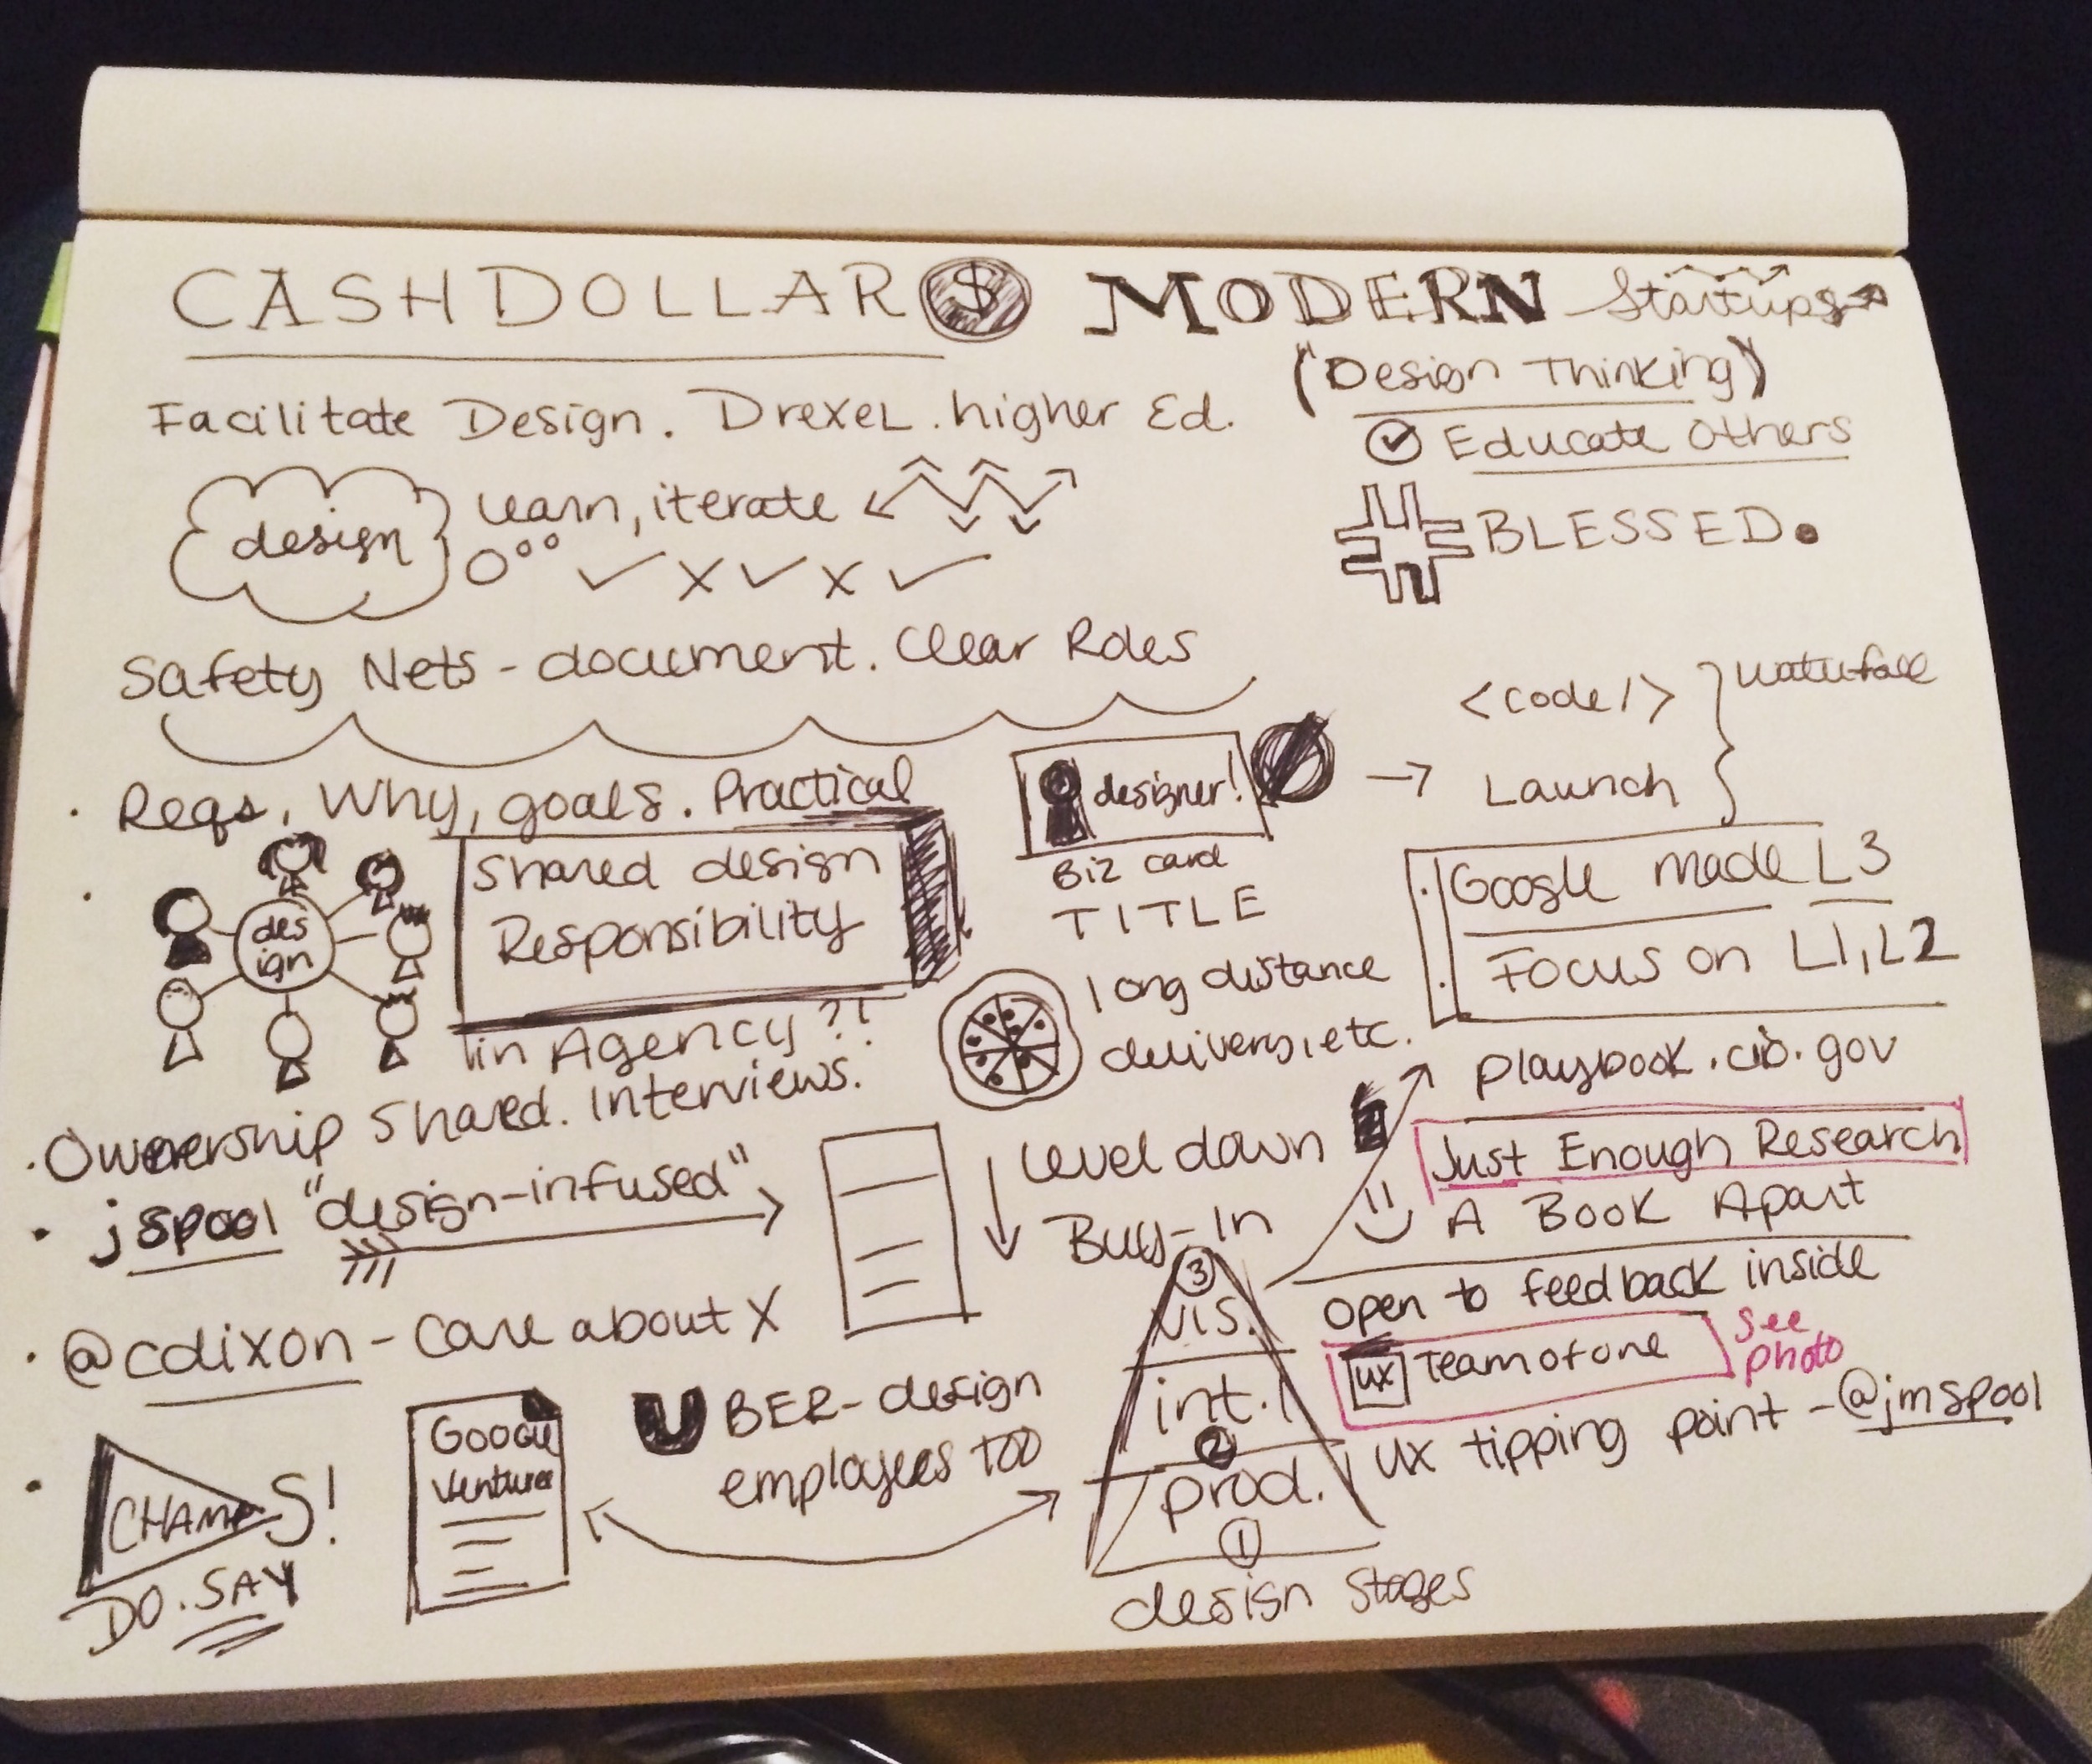 CASHDOLLAR $ MODERN Startups
("Design Thinking")
Facilitate Design. Drexel. higher Ed.
Educate Others
design
learn, iterate
# BLESSED.
Safety Nets - document. Clear Roles
<code/>
Launch
waterfall
· Reqs, Why, goals. Practical
designer!
Biz card
TITLE
des
ign
Shared design
Responsibility
in Agency?!
· Google made L3
· Focus on L1, L2
long distance
delivery, etc.
playbook.cio.gov
· Ownership Shared. Interviews.
Level down
Buy-In
Just Enough Research
A Book Apart
· jspool "design-infused"
· @cdixon - Care about X
open to feedback inside
UX Team of one
See
photo
UX tipping point - @jmspool
· CHAMPS!
DO. SAY
Google
Ventures
UBER-design
employees too
3
vis.
int.
2
prod.
1
design stages